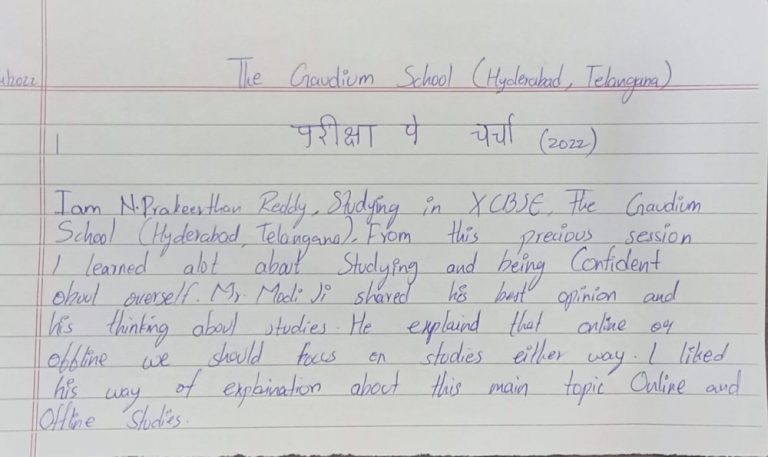 4/2022
The Gaudium School (Hyderabad, Telangana)
परीक्षा पे चर्चा (2022)
I am N.Prakeerthan Reddy, Studying in X CBSE, The Gaudium
School (Hyderabad, Telangana). From this precious session
I learned alot about Studying and being Confident
about overself. Mr. Modi Ji shared his best opinion and
his thinking about studies. He explaind that online or
offline we should focus on studies either way. I liked
his way of explination about this main topic Online and
Offline Studies.